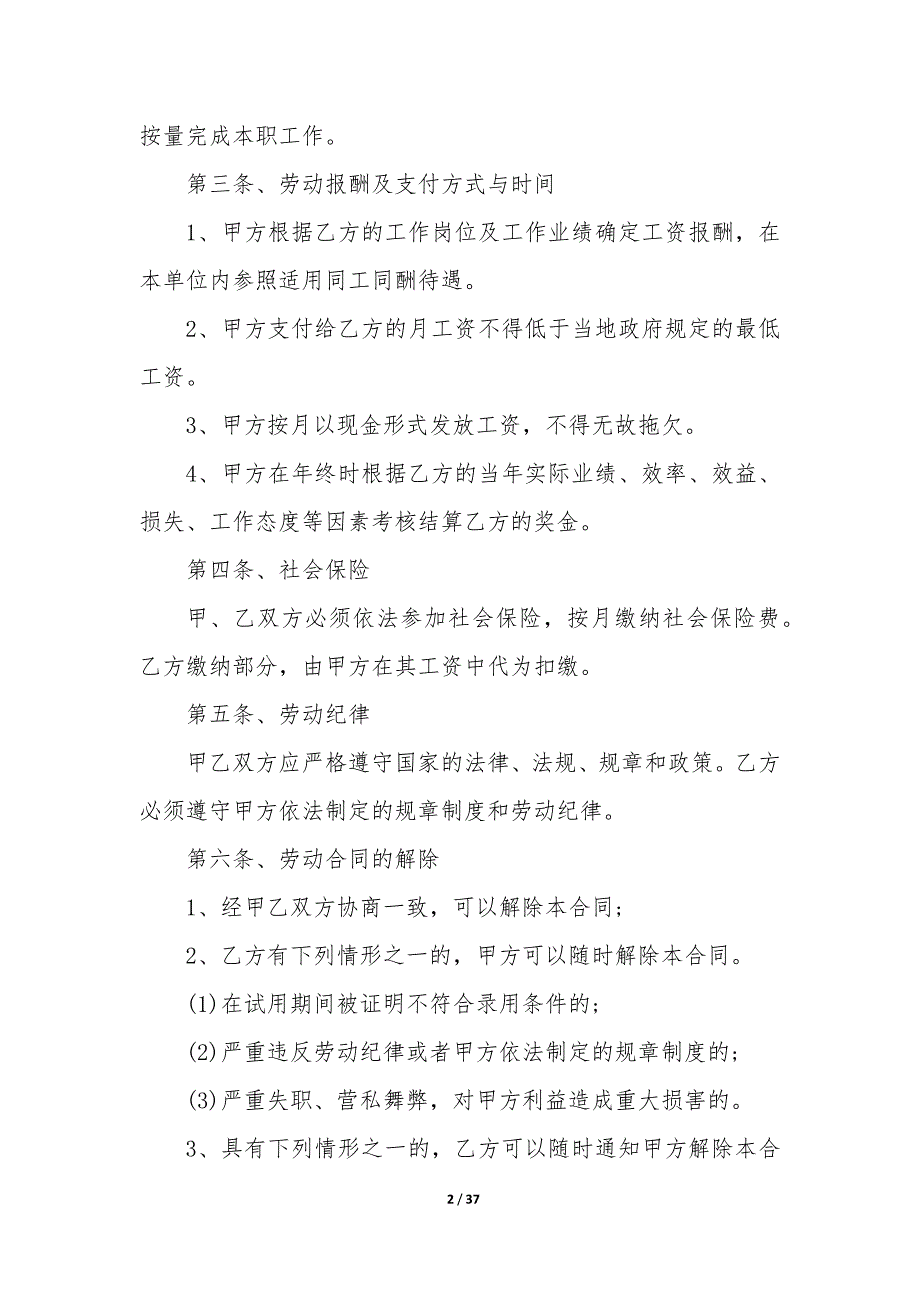 按量完成本职工作。
第三条、劳动报酬及支付方式与时间
1、甲方根据乙方的工作岗位及工作业绩确定工资报酬，在
本单位内参照适用同工同酬待遇。
2、甲方支付给乙方的月工资不得低于当地政府规定的最低
工资。
3、甲方按月以现金形式发放工资，不得无故拖欠。
4、甲方在年终时根据乙方的当年实际业绩、效率、效益、
损失、工作态度等因素考核结算乙方的奖金。
第四条、社会保险
甲、乙双方必须依法参加社会保险，按月缴纳社会保险费。
乙方缴纳部分，由甲方在其工资中代为扣缴。
第五条、劳动纪律
甲乙双方应严格遵守国家的法律、法规、规章和政策。乙方
必须遵守甲方依法制定的规章制度和劳动纪律。
第六条、劳动合同的解除
1、经甲乙双方协商一致，可以解除本合同;
2、乙方有下列情形之一的，甲方可以随时解除本合同。
(1)在试用期间被证明不符合录用条件的;
(2)严重违反劳动纪律或者甲方依法制定的规章制度的;
(3)严重失职、营私舞弊，对甲方利益造成重大损害的。
3、具有下列情形之一的，乙方可以随时通知甲方解除本合
2 / 37